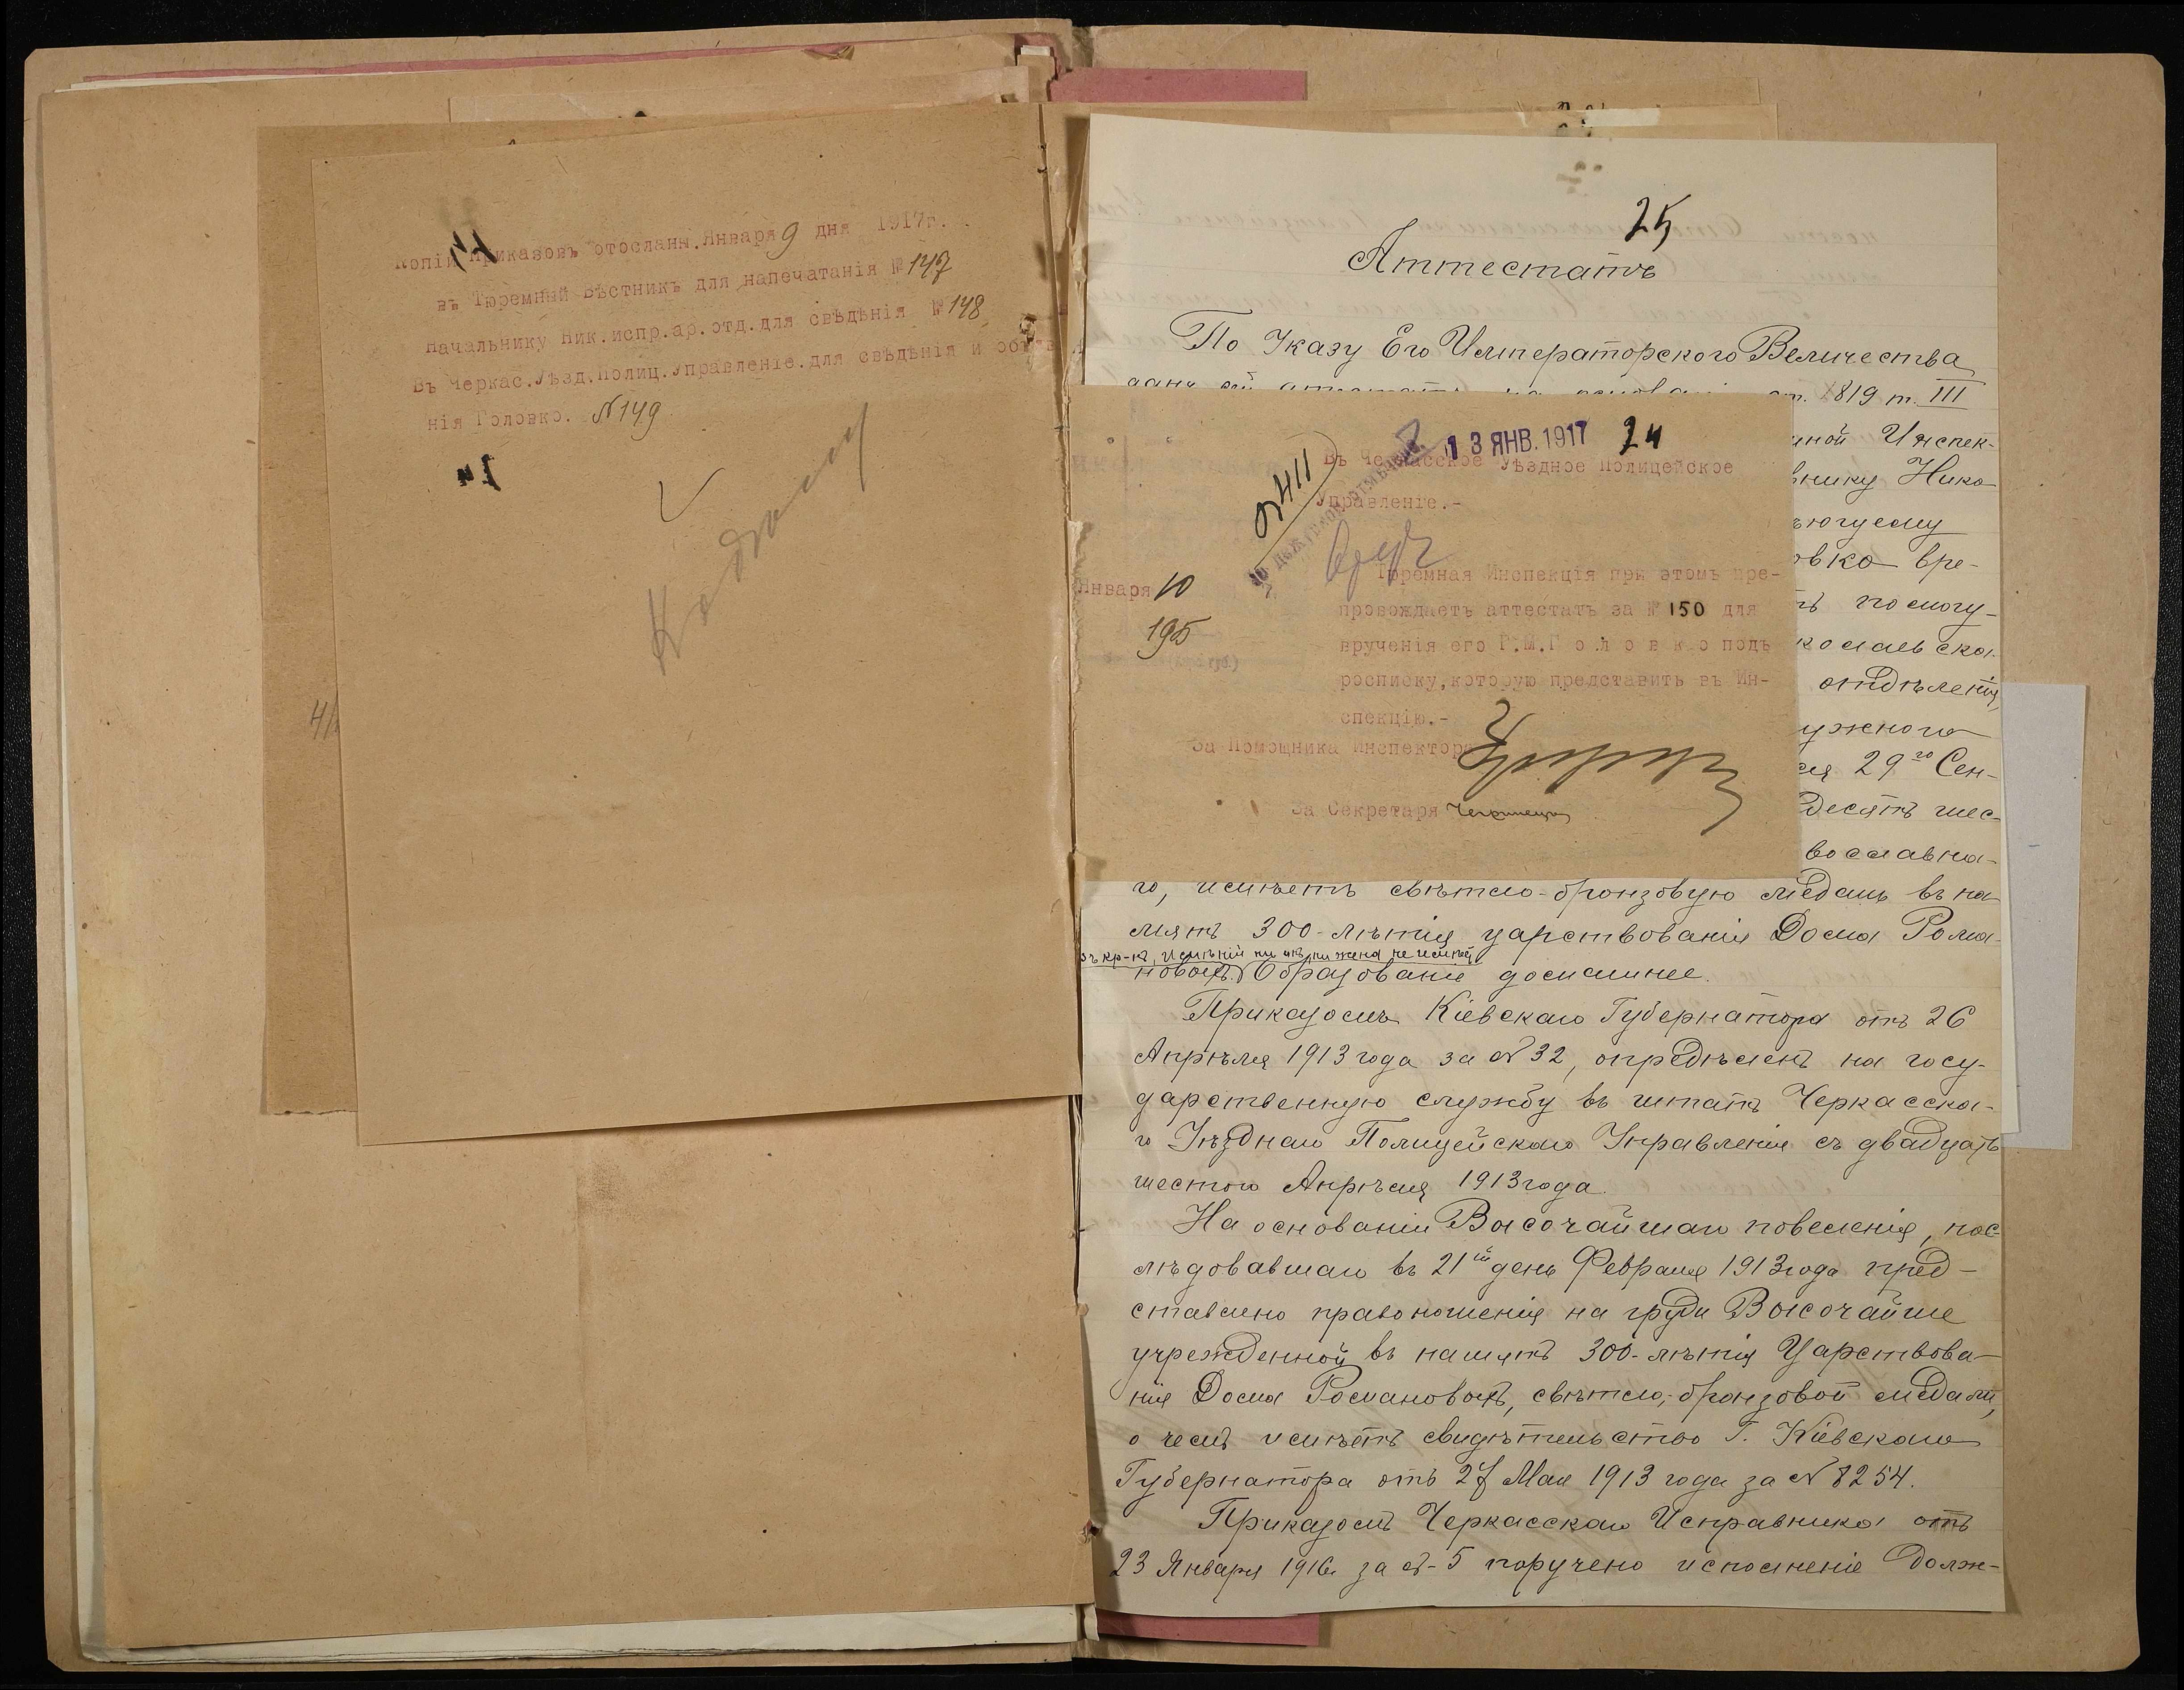 Копіи приказовъ отосланы.Января 9 дня 1917г.
въ Тюремный Вѣстникъ для напечатанія № 147
Начальнику Ник.испр.ар.отд.для свѣдѣнія № 148
Въ Черкас.Уѣзд.Полиц.Управленіе.для свѣдѣнія и объяв
нія Головко. № 149
25
Аттестатъ
По Указу Его Императорскаго Величества
данъ сей аттестатъ на основаніи ст. 1819 т. III
ной Инспек-
внику Нико
ующему
овко вре-
помогу-
колаевска-
отдѣленія,
ужного
29го Сен-
десятъ шес-
вославна-
13 ЯНВ. 1917 24
№ 411
Въ Черкасское Уѣздное Полицейское
Управленіе.-
Января 10
195
Тюремная Инспекція при этомъ пре-
провождаетъ аттестатъ за № 150 для
врученія его Г.М.Г о л о в к о подъ
росписку,которую представить въ Ин-
спекцію.-
За Помощника Инспектора
За Секретаря
го, имѣетъ свѣтло-бронзовую медаль въ па-
мять 300-лѣтія царствованія Дома Рома-
новыхъ. Образованіе домашнее.
Приказомъ Кіевскаго Губернатора отъ 26
Апрѣля 1913 года за № 32, опредѣленъ на госу-
дарственную службу въ штатъ Черкасска-
го Уѣзднаго Полицейскаго Управленія съ двадцать
шестого Апрѣля 1913 года.
На основаніи Высочайшаго повеленія, пос-
лѣдовавшаго въ 21й день Февраля 1913 года пред-
ставлено право ношенія на груди Высочайше
учрежденной въ память 300-лѣтія Царствова-
нія Дома Романовыхъ, свѣтло-бронзовой медали,
о чемъ имѣетъ свидѣтельство Г. Кіевскаго
Губернатора отъ 27 Мая 1913 года за № 8254.
Приказомъ Черкасскаго Исправника отъ
23 Января 1916г за № 5 поручено исполненіе долж-